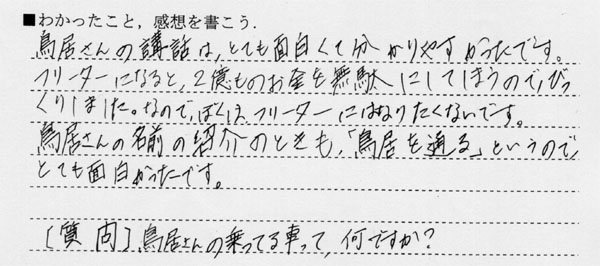 ■わかったこと，感想を書こう．
鳥居さんの講話は、とても面白くて分かりやすかったです。
フリーターになると、2億ものお金を無駄にしてしまうので、びっ
くりしました。なので、ぼくは、フリーターにはなりたくないです。
鳥居さんの名前の紹介のときも、「鳥居を通る」というので、
とても面白かったです。
[質問]、鳥居さんの乗ってる車って、何ですか?